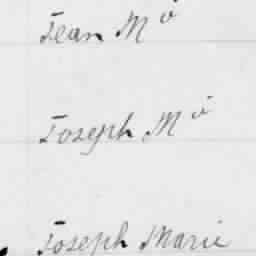 Jean Mie
Joseph Mie
Joseph Marie